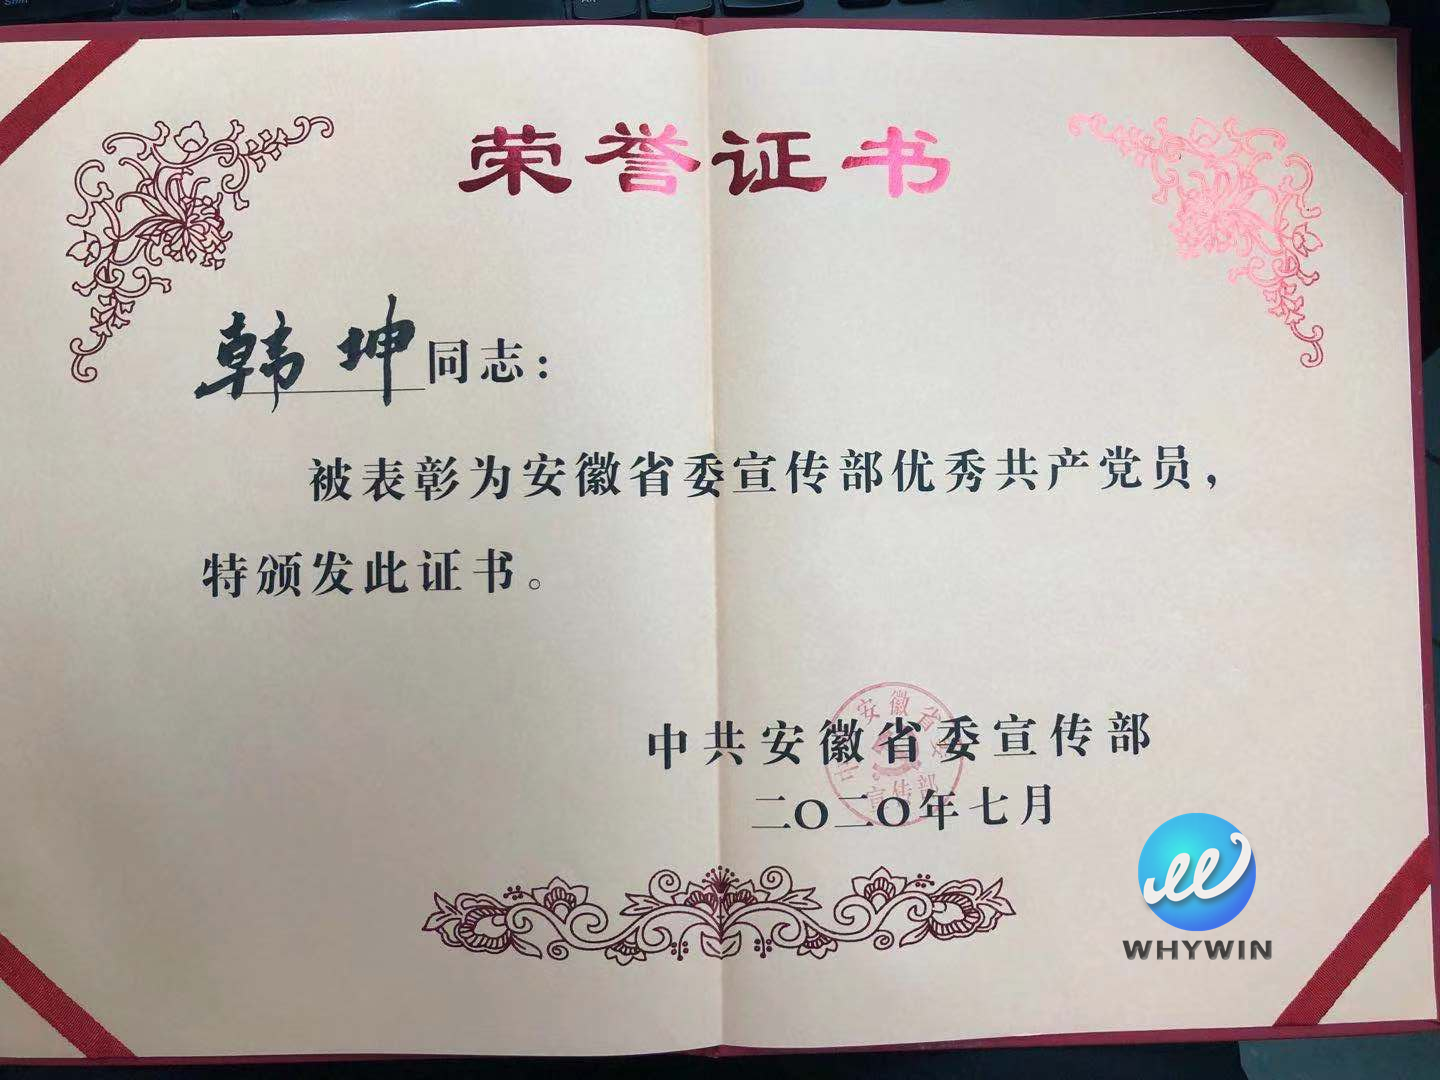 荣誉证书
韩坤同志：
被表彰为安徽省委宣传部优秀共产党员，
特颁发此证书。
中共安徽省委宣传部
二〇二〇年七月
WHYWIN